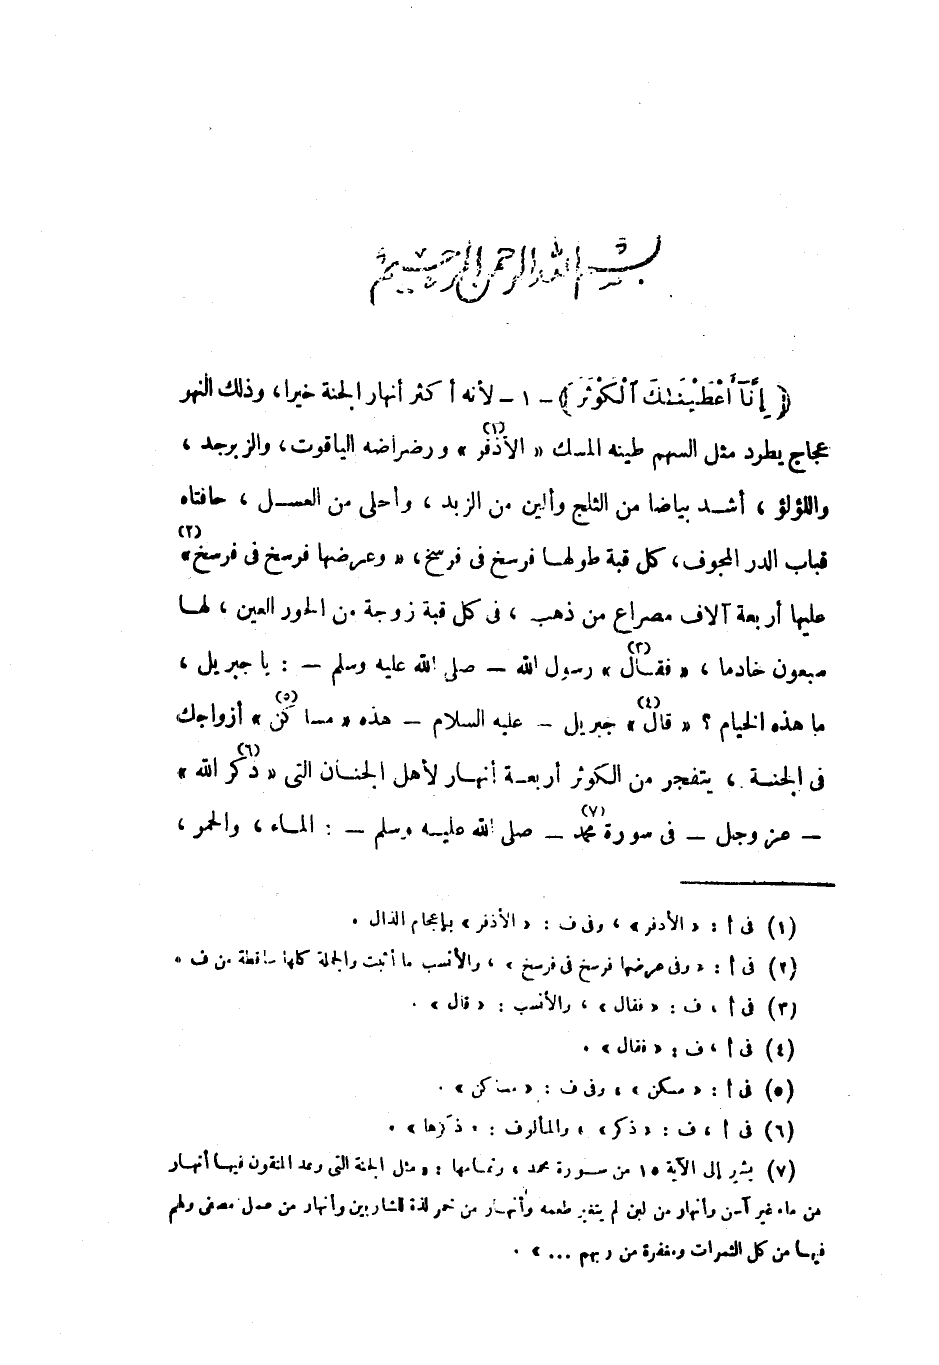 بسم الله الرحمن الرحيم
﴿ إِنَّآ أَعْطَيْنَـٰكَ ٱلْكَوْثَرَ ﴾ - ١ - لأنه أكثر أنهار الجنة خيرا، وذلك النهر
عجاج يطرد مثل السهم طينه المسك « الأذفر (١) » ورضراضه الياقوت، والزبرجد ،
واللؤلؤ ، أشد بياضا من الثلج وألين من الزبد ، وأحلى من العسل ، حافتاه
قباب الدر المجوف، كل قبة طولها فرسخ فى فرسخ، « وعرضها فرسخ فى فرسخ (٢) »
عليها أربعة آلاف مصراع من ذهب ، فى كل قبة زوجة من الحور العين ، لها
سبعون خادما ، « فقال (٣) » رسول الله – صلى الله عليه وسلم – : يا جبريل ،
ما هذه الخيام ؟ « قال (٤) » جبريل – عليه السلام – هذه « مساكن (٥) » أزواجك
فى الجنة ، يتفجر من الكوثر أربعة أنهار لأهل الجنان التى « ذكر (٦) الله »
– عز وجل – فى سورة محمد (٧) – صلى الله عليه وسلم – : الماء ، والخمر ،
(١) فى أ : « الأدفر » ، وفى ف : « الأذفر » بإعجام الذال .
(٢) فى أ : « وفى عرضها فرسخ فى فرسخ » ، والأنسب ما أثبت والجملة كلها ساقطة من ف .
(٣) فى أ ، ف : « فقال » ، والأنسب : « قال » .
(٤) فى أ ، ف : « فقال » .
(٥) فى أ : « مسكن » ، وفى ف : « مساكن » .
(٦) فى أ ، ف : « ذكر » ، والمألوف : « ذكرها » .
(٧) يشير إلى الآية ١٥ من سورة محمد ، وتمامها : « مثل الجنة التى وعد المتقون فيها أنهار
من ماء غير آسن وأنهار من لبن لم يتغير طعمه وأنهار من خمر لذة للشاربين وأنهار من عسل مصفى ولهم
فيها من كل الثمرات ومغفرة من ربهم ... » .